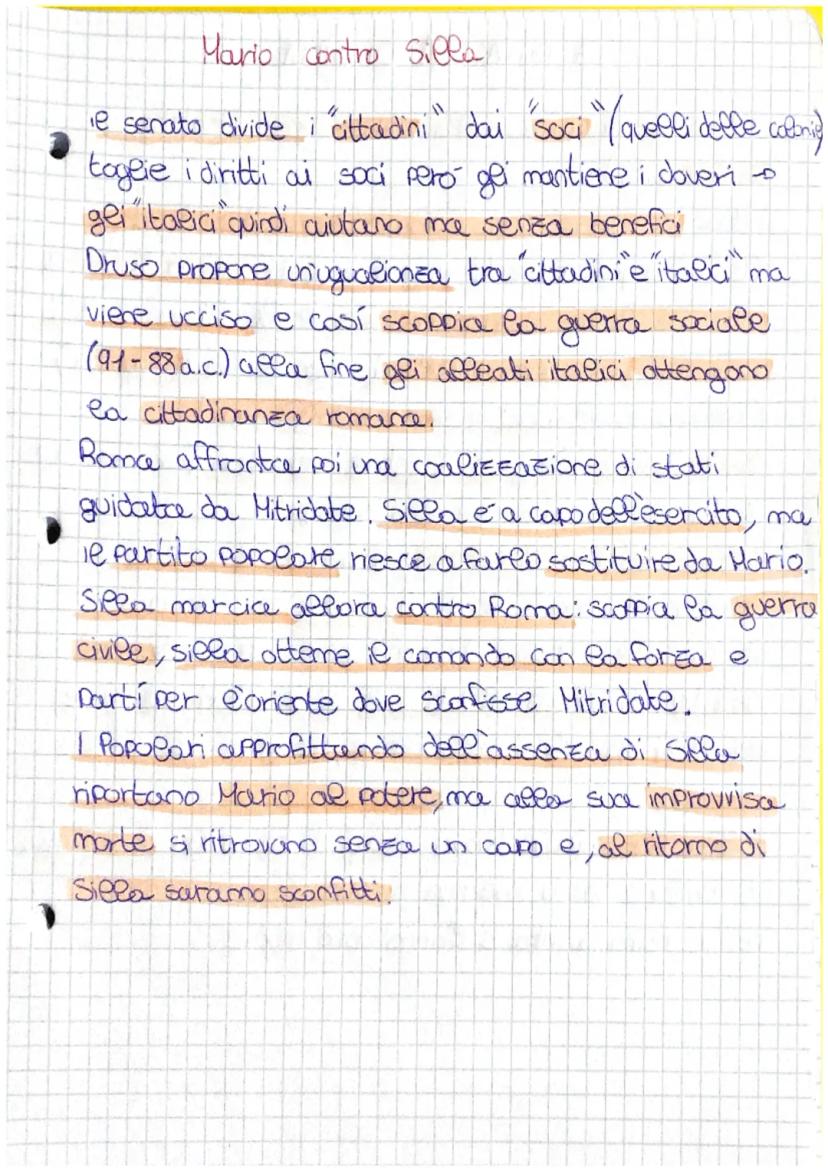 Mario contro Silla
il senato divide i "cittadini" dai "soci" (quelli delle colonie)
toglie i diritti ai soci però gli mantiene i doveri →
gli "italici" quindi aiutano ma senza benefici
Druso propone un'uguaglianza tra "cittadini" e "italici" ma
viene ucciso e così scoppia la guerra sociale
(91-88 a.c.) alla fine gli alleati italici ottengono
la cittadinanza romana.
Roma affronta poi una coalizzazione di stati
guidata da Mitridate. Silla è a capo dell'esercito, ma
il partito popolare riesce a farlo sostituire da Mario.
Silla marcia allora contro Roma: scoppia la guerra
civile, silla ottenne il comando con la forza e
partì per l'oriente dove sconfisse Mitridate.
I Popolari approfittando dell'assenza di Silla
riportano Mario al potere, ma alla sua improvvisa
morte si ritrovano senza un capo e, al ritorno di
Silla saranno sconfitti.